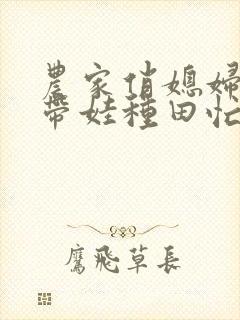 農家俏媳婦
帶娃種田忙
鷹飛草長